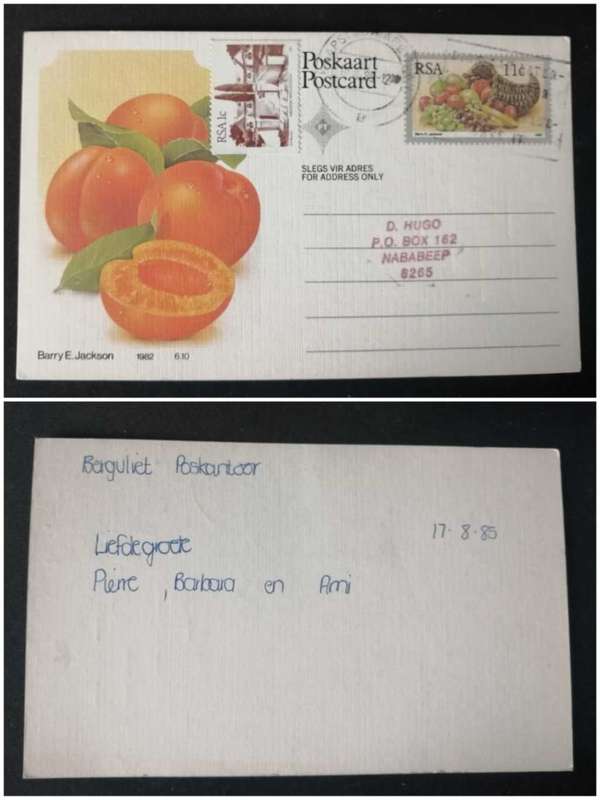 Poskaart
Postcard
RSA 1c
RSA 11c
Barry E. Jackson
SLEGS VIR ADRES
FOR ADDRESS ONLY
D. HUGO
P.O. BOX 162
NABABEEP
8265
Barry E. Jackson 1982 6.10
Bergvliet Poskantoor
17-8-85
Liefdegroete
Pierre, Barbara en Ami